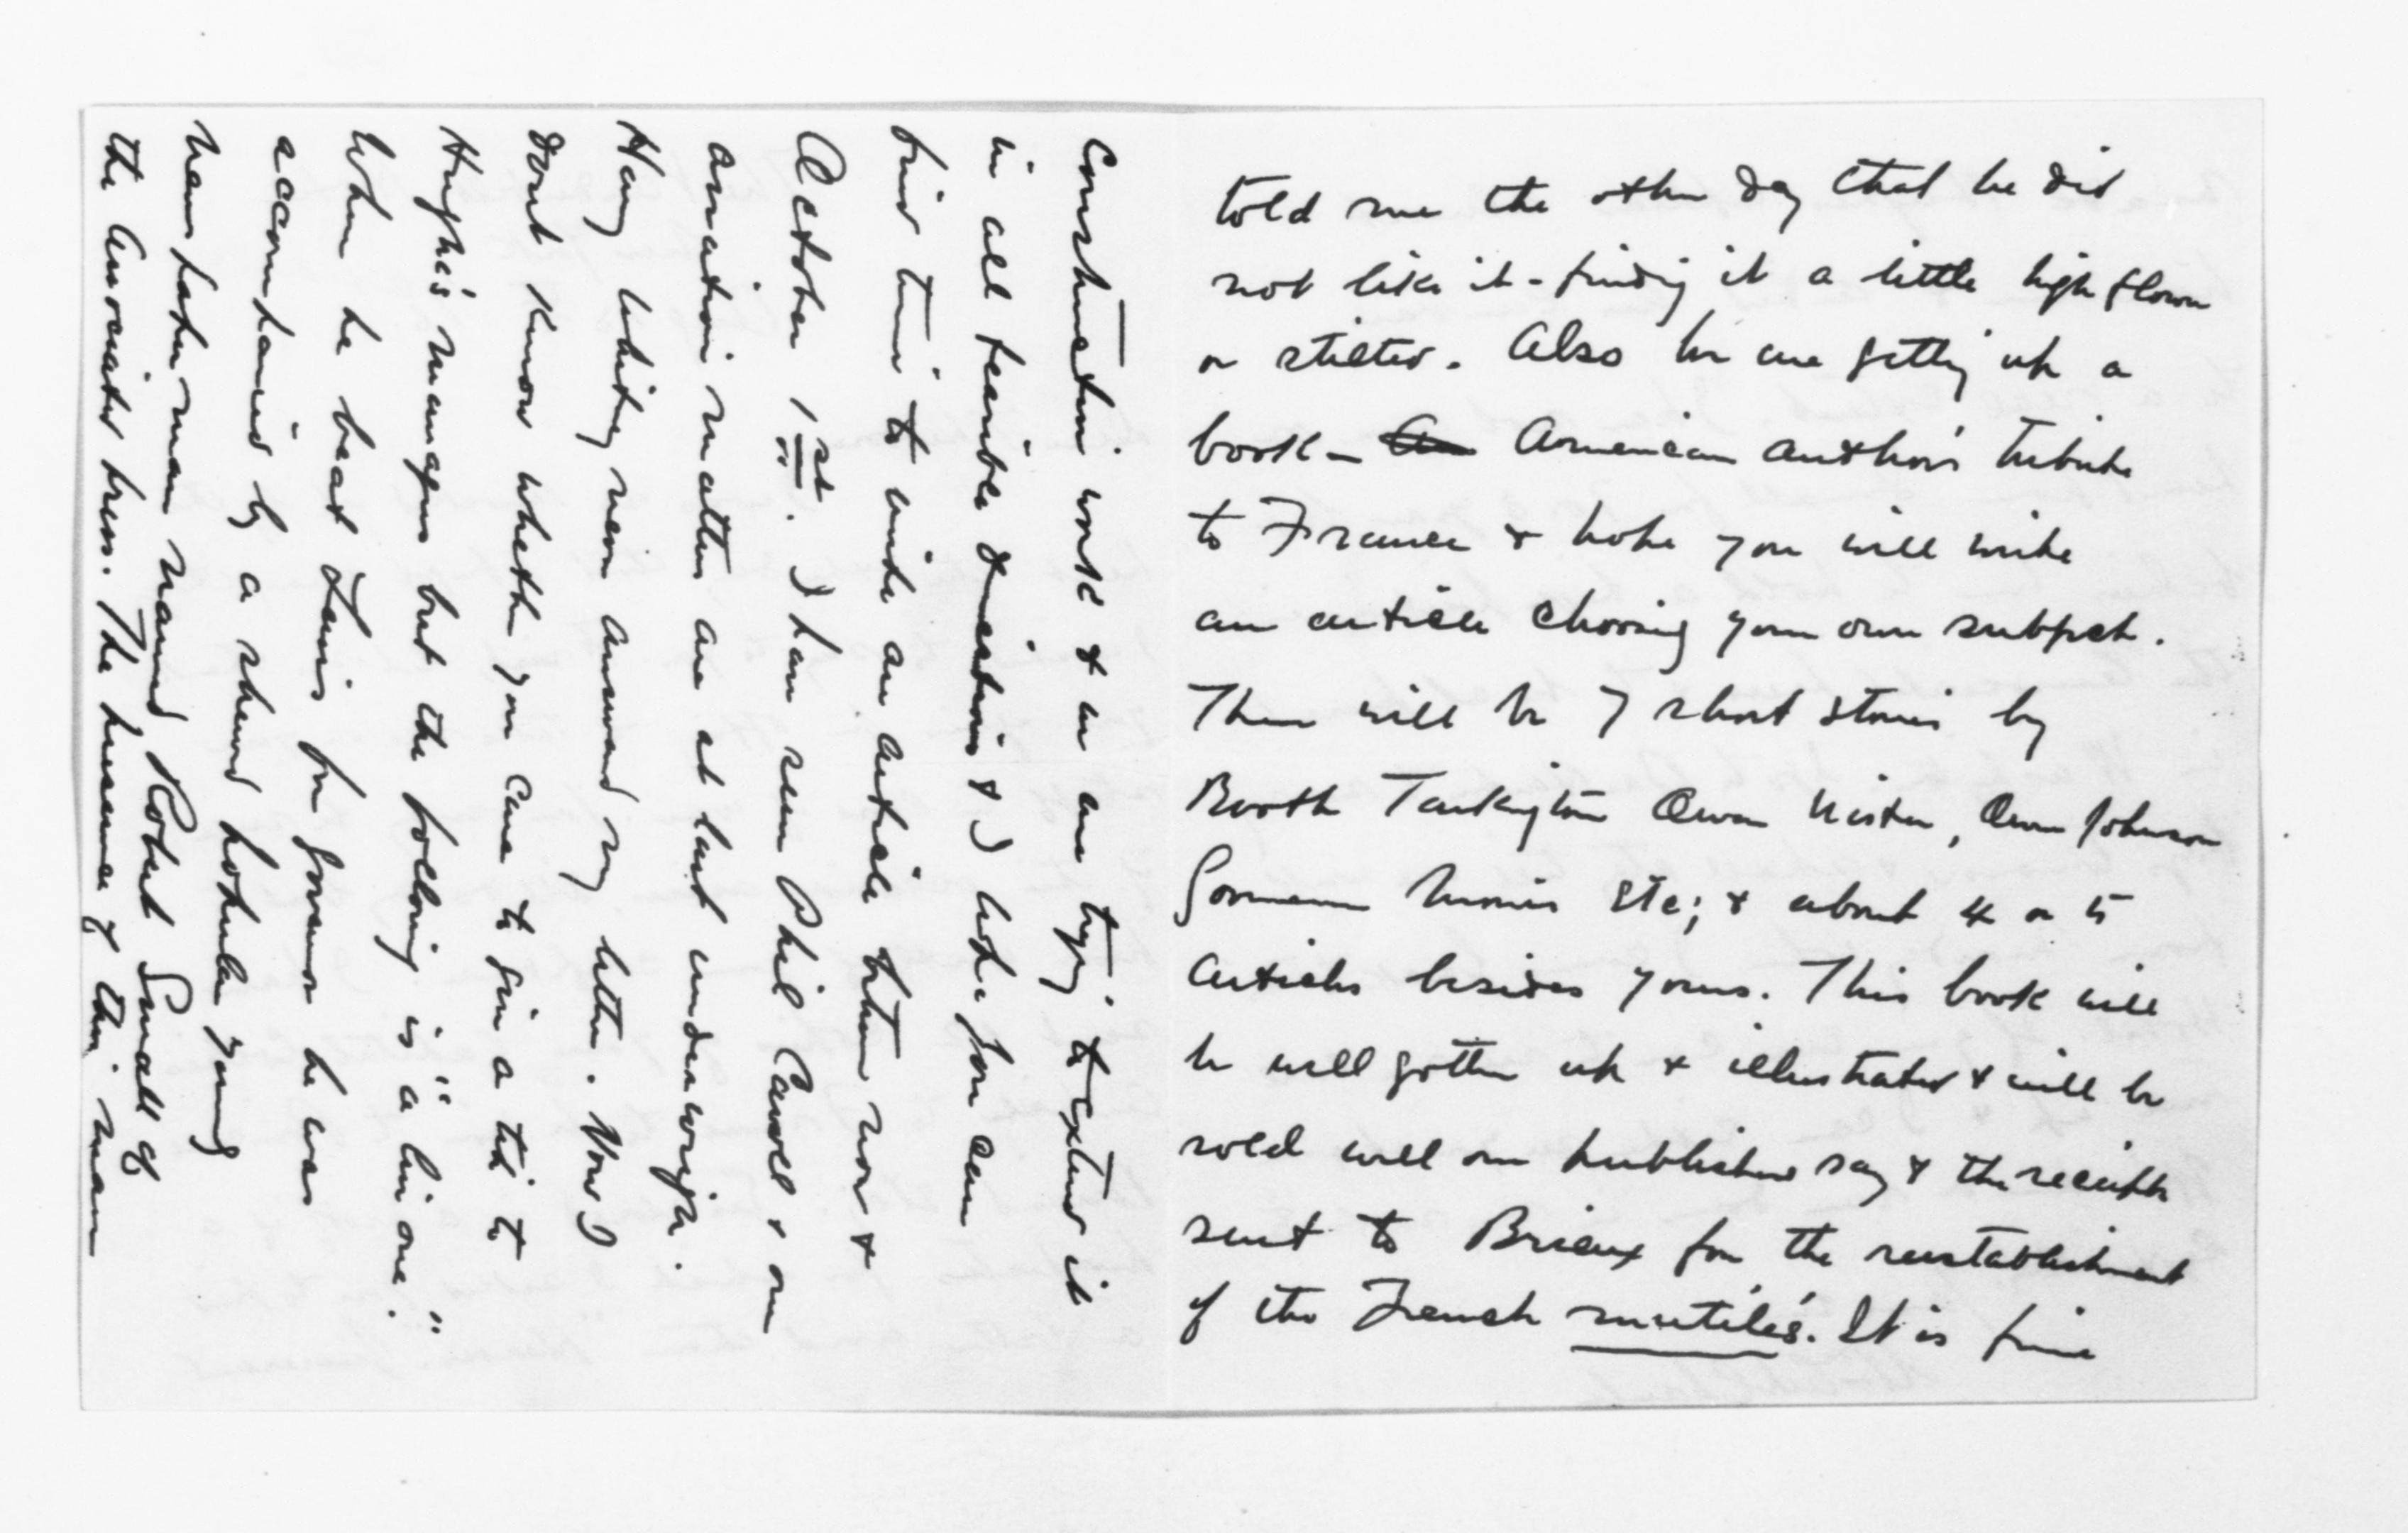 told me the other day that he did
not like it - finding it a little high flown
or stilted. Also we are getting up a
book - An American author's tribute
to France & hope you will write
an article choosing your own subject.
There will be 7 short stories by
Booth Tarkington Owen Wister, Owen Johnson
Gouverneur Morris etc; & about 4 or 5
articles besides yours. This book will
be well gotten up & illustrated & will be
sold well our publishers say & the receipts
sent to Brieux for the reestablishment
of the French mutilés. It is fine
Construction work & we are trying to extend it
in all feasible directions & I hope you can
find time to write an article between now &
October 1st. I have seen Phil Carroll & our
aviation matters are at last underweigh.
Harry Whitney never answered my letter. Now I
dont know whether you care to give a tip to
Hughe's managers but the following is "a live one".
When he beat Jerome for governor he was
accompanied by a shrewd popular young
newspaper man named Robert Small of
the Associated Press. The presence of this man